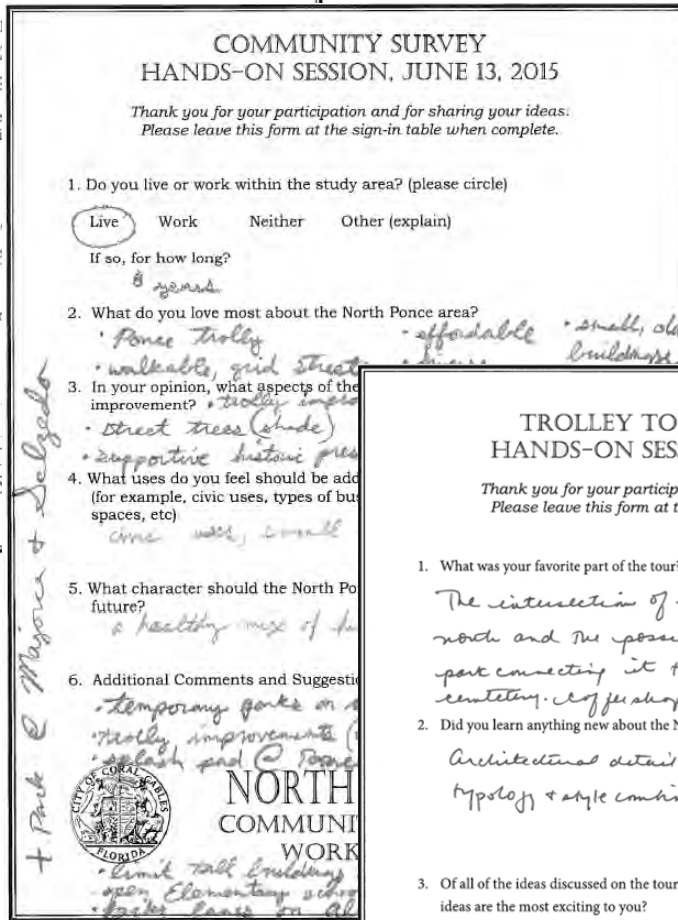 COMMUNITY SURVEY
HANDS-ON SESSION, JUNE 13, 2015
Thank you for your participation and for sharing your ideas.
Please leave this form at the sign-in table when complete.
1. Do you live or work within the study area? (please circle)
Live Work Neither Other (explain)
If so, for how long?
8 years
2. What do you love most about the North Ponce area?
• Ponce trolly • affordable • small, old
• walkable, grid streets buildings
3. In your opinion, what aspects of the
improvement? • trolly impro
• street trees (shade)
• supportive historic pres
4. What uses do you feel should be add
(for example, civic uses, types of bu
spaces, etc)
civic uses, small
5. What character should the North Po
future?
a healthy mix of
6. Additional Comments and Suggestio
• temporary parks on
• trolly improvements
• splash pad @
+ Park @ Majorca + Salzedo
CITY OF CORAL GABLES
FLORIDA
NORTH
COMMUNI
WORK
• limit tall buildings
open Elementary schoo
lanes on al
TROLLEY TO
HANDS-ON SES
Thank you for your particip
Please leave this form at t
1. What was your favorite part of the tour?
The intersection of
north and the possi
park connecting it t
cemetery. coffee shop
2. Did you learn anything new about the N
Architectural detail
typology + style combi
3. Of all of the ideas discussed on the tour
ideas are the most exciting to you?